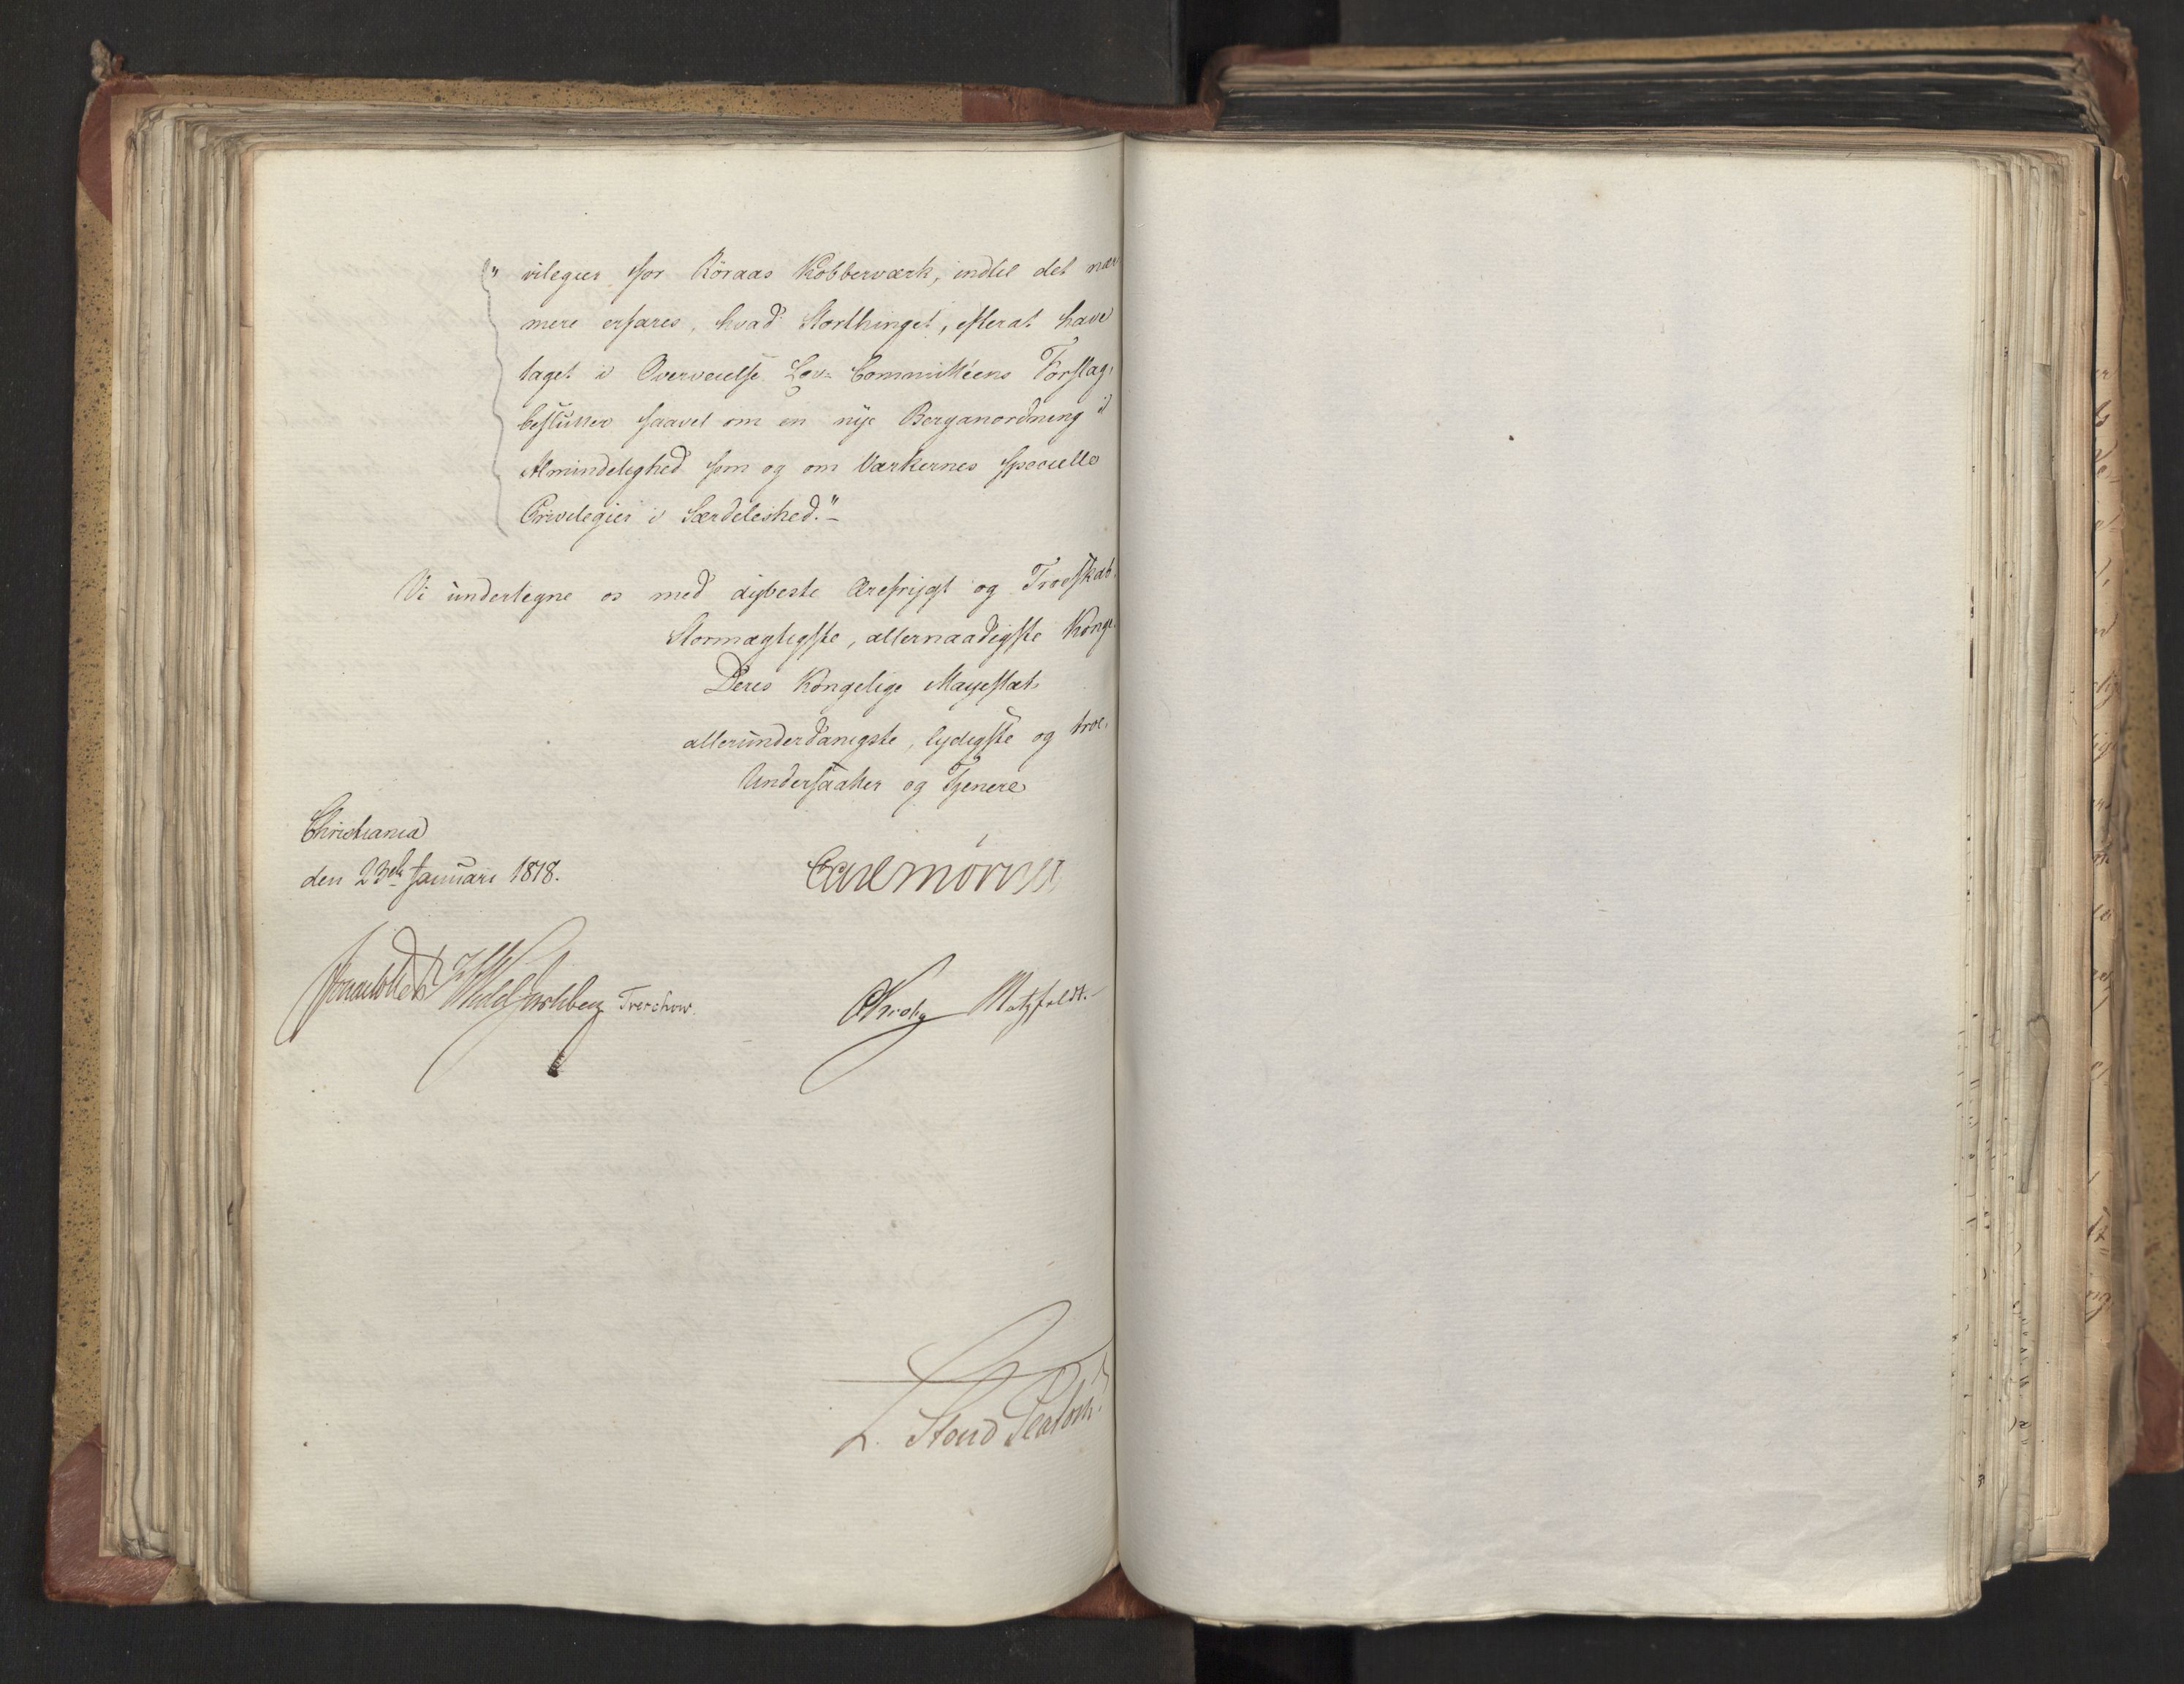 " vilegier for Röraas Kobberværk, indtil det nær
mere erfares, hvad Storthinget, efterat have
taget i Overveielse Lov-Committéens Forslag,
beslutter saavel om en nye Berganordning i
Almindelighed som og om Værkernes specielle
Privilegier i Særdeleshed."-
Vi undertegne os med dybeste Ærefrygt og Troeskab.
Stormægtigste, allernaadigste Konge
Deres Kongelige Mayestæts
allerunderdanigste, lydigste og troe
Undersaatter og Tjenere
Christiania
den 23de Januari 1818.
Carl Mörner
Sommerhielm Wedel Jarlsberg Treschow. CKrohg Motzfeldt.-
L. Stoud Platou